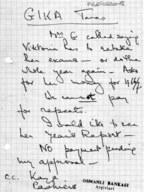 GIKA Tares
My G called saying
Victoria has to retake
her exams - or
whole year again - Asks
for her money for
Dr cannot pay
for repeats
I would like to see
her year's Report -
NO payment pending
my approval -
c.c. Kaya
Cashiers
OSMANLI BANKASI